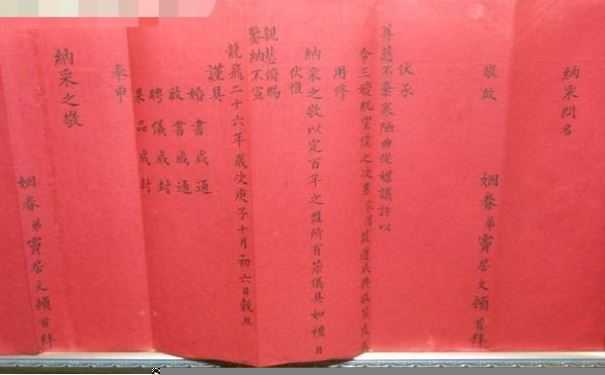 納采問名
敬啟
姻眷弟竇若文頓首拜
伏承
尊慈不棄寒陋曲從媒議許以
令三
用修
納采之敬以定百年之盟所有茶儀具如禮目
伏惟
親慈俯賜
鑒納不宣
龍飛二十六年歲次庚子十月初六日穀旦
謹具
婚書成通
啟書成通
聘儀成封
果品成封
奉申
納采之敬
姻眷弟竇若文頓首拜